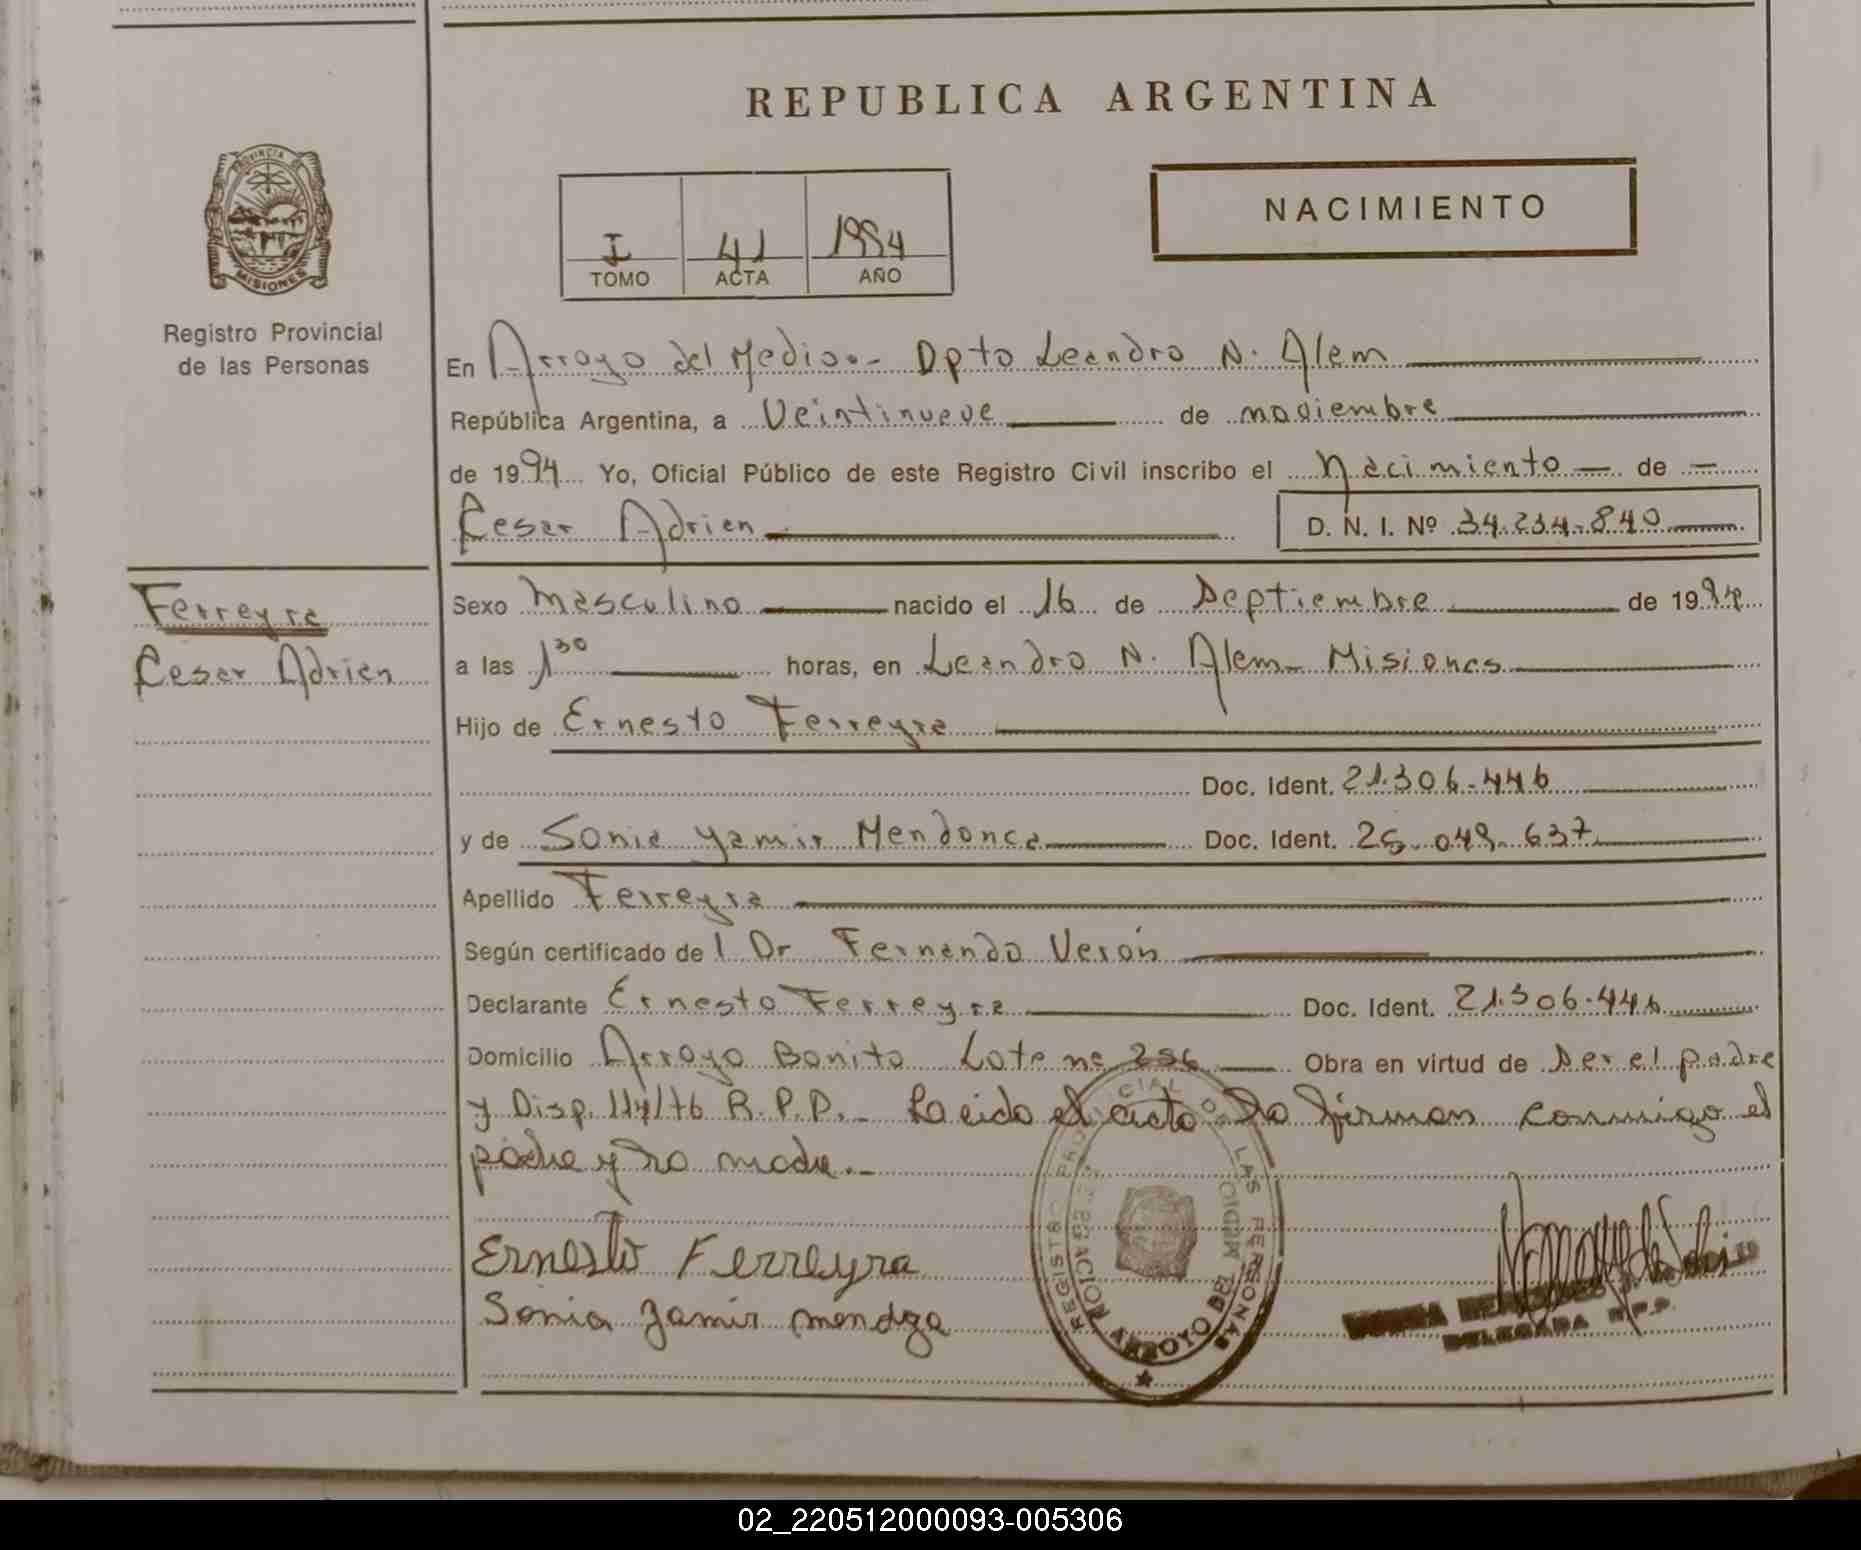 REPUBLICA ARGENTINA
PROVINCIA DE
MISIONES
Registro Provincial
de las Personas
I 41 1994
TOMO ACTA AÑO
NACIMIENTO
En Arroyo del Medio.- Dpto Leandro N. Alem
República Argentina, a Veintinueve de noviembre
de 1994 Yo, Oficial Público de este Registro Civil inscribo el Nacimiento — de —
Cesar Adrian D. N. I. Nº 34.234.840
Ferreyra
Cesar Adrian
Sexo Masculino nacido el 16 de Septiembre de 1994
a las 1³⁰ horas, en Leandro N. Alem - Misiones
Hijo de Ernesto Ferreyra
Doc. Ident. 21.306.446
y de Sonia Yamir Mendonca Doc. Ident. 25.049.637
Apellido Ferreyra
Según certificado de l Dr Fernando Verón
Declarante Ernesto Ferreyra Doc. Ident. 21.306.446
Domicilio Arroyo Bonito Lote nº 256 Obra en virtud de Ser el padre
y Disp. 114/76 R.P.P.- Leida el acta la firman conmigo el
padre y la madre.-
Ernesto Ferreyra
Sonia Yamir
REGISTRO PROVINCIAL DE LAS PERSONAS
DELEGACION ARROYO DEL MEDIO
DELEGADA R.P.P.
02_220512000093-005306